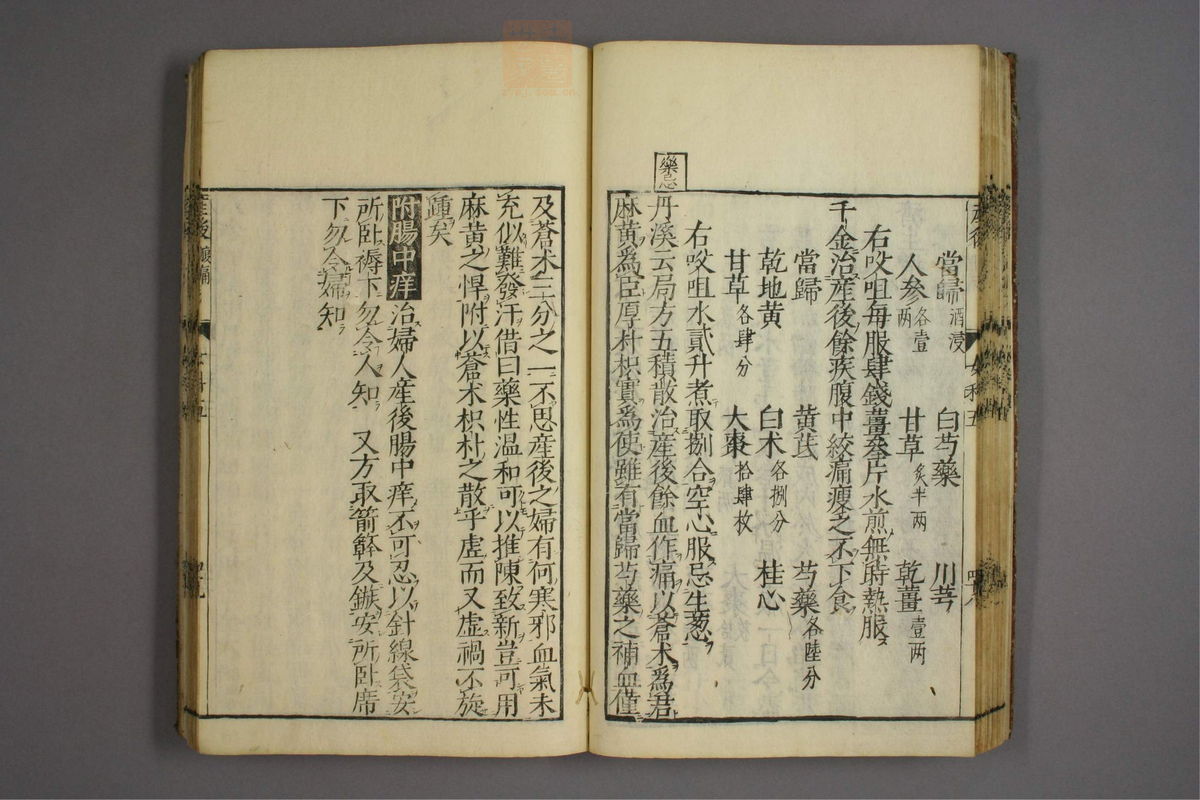 當歸酒浸 白芍藥 川芎
人參各壹兩 甘草炙半兩 乾薑壹兩
右㕮咀每服肆錢薑叄片水煎無時熱服
千金治產後餘疾腹中絞痛瘦乏不下食
當歸 黃芪 芍藥各陸分
乾地黃 白朮各捌分 桂心
甘草各肆分 大棗拾肆枚
右㕮咀水貳升煮取捌合空心服忌生葱
藥忌
丹溪云局方五積散治產後餘血作痛以蒼朮爲君
麻黃爲臣厚朴枳實爲使雖有當歸芍藥之補血僅
及蒼朮三分之一不思產後之婦有何寒邪血氣未
充似難發汗借曰藥性溫和可以推陳致新豈可用
麻黃之悍附以蒼朮枳朴之散乎虛而又虛禍不旋
踵矣
附腸中痒 治婦人產後腸中痒不可忍以針線袋安
所臥褥下勿令人知 又方取箭簳及鏃安所臥席
下勿令婦知
產後
女科五